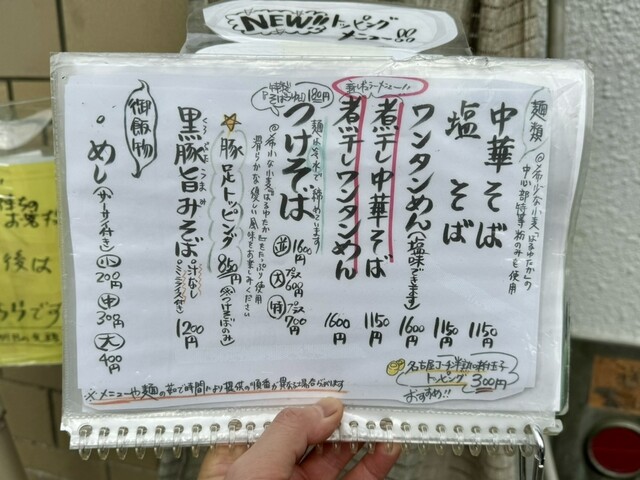 NEW!! トッピング
メニュー!!
麺類
◎希少な小麦「はるゆたか」の
中心部特等粉のみを使用
中華そば 1150円
塩そば 1150円
ワンタンめん(塩味できます) 1600円
新しいラーメニュー!!
煮干し中華そば 1150円
煮干しワンタンめん 1600円
麺は冷水で締めています
つけそば 並 1600円
大 プラス 600円
特 プラス 700円
◎希少な小麦「はるゆたか」をたっぷり使用
滑らかな優しい風味をお楽しみください
☆豚足トッピング 850円(つけそばのみ)
黒豚旨みそば 汁なし 1200円
くろぶたうまみ
御飯物
・めし(ザーサイ付き) 小 200円 中 300円 大 400円
名古屋コーチン半熟味付玉子
トッピング 300円
おすすめ!!
※メニューや麺の茹で時間により提供の順番が異なる場合があります
後は